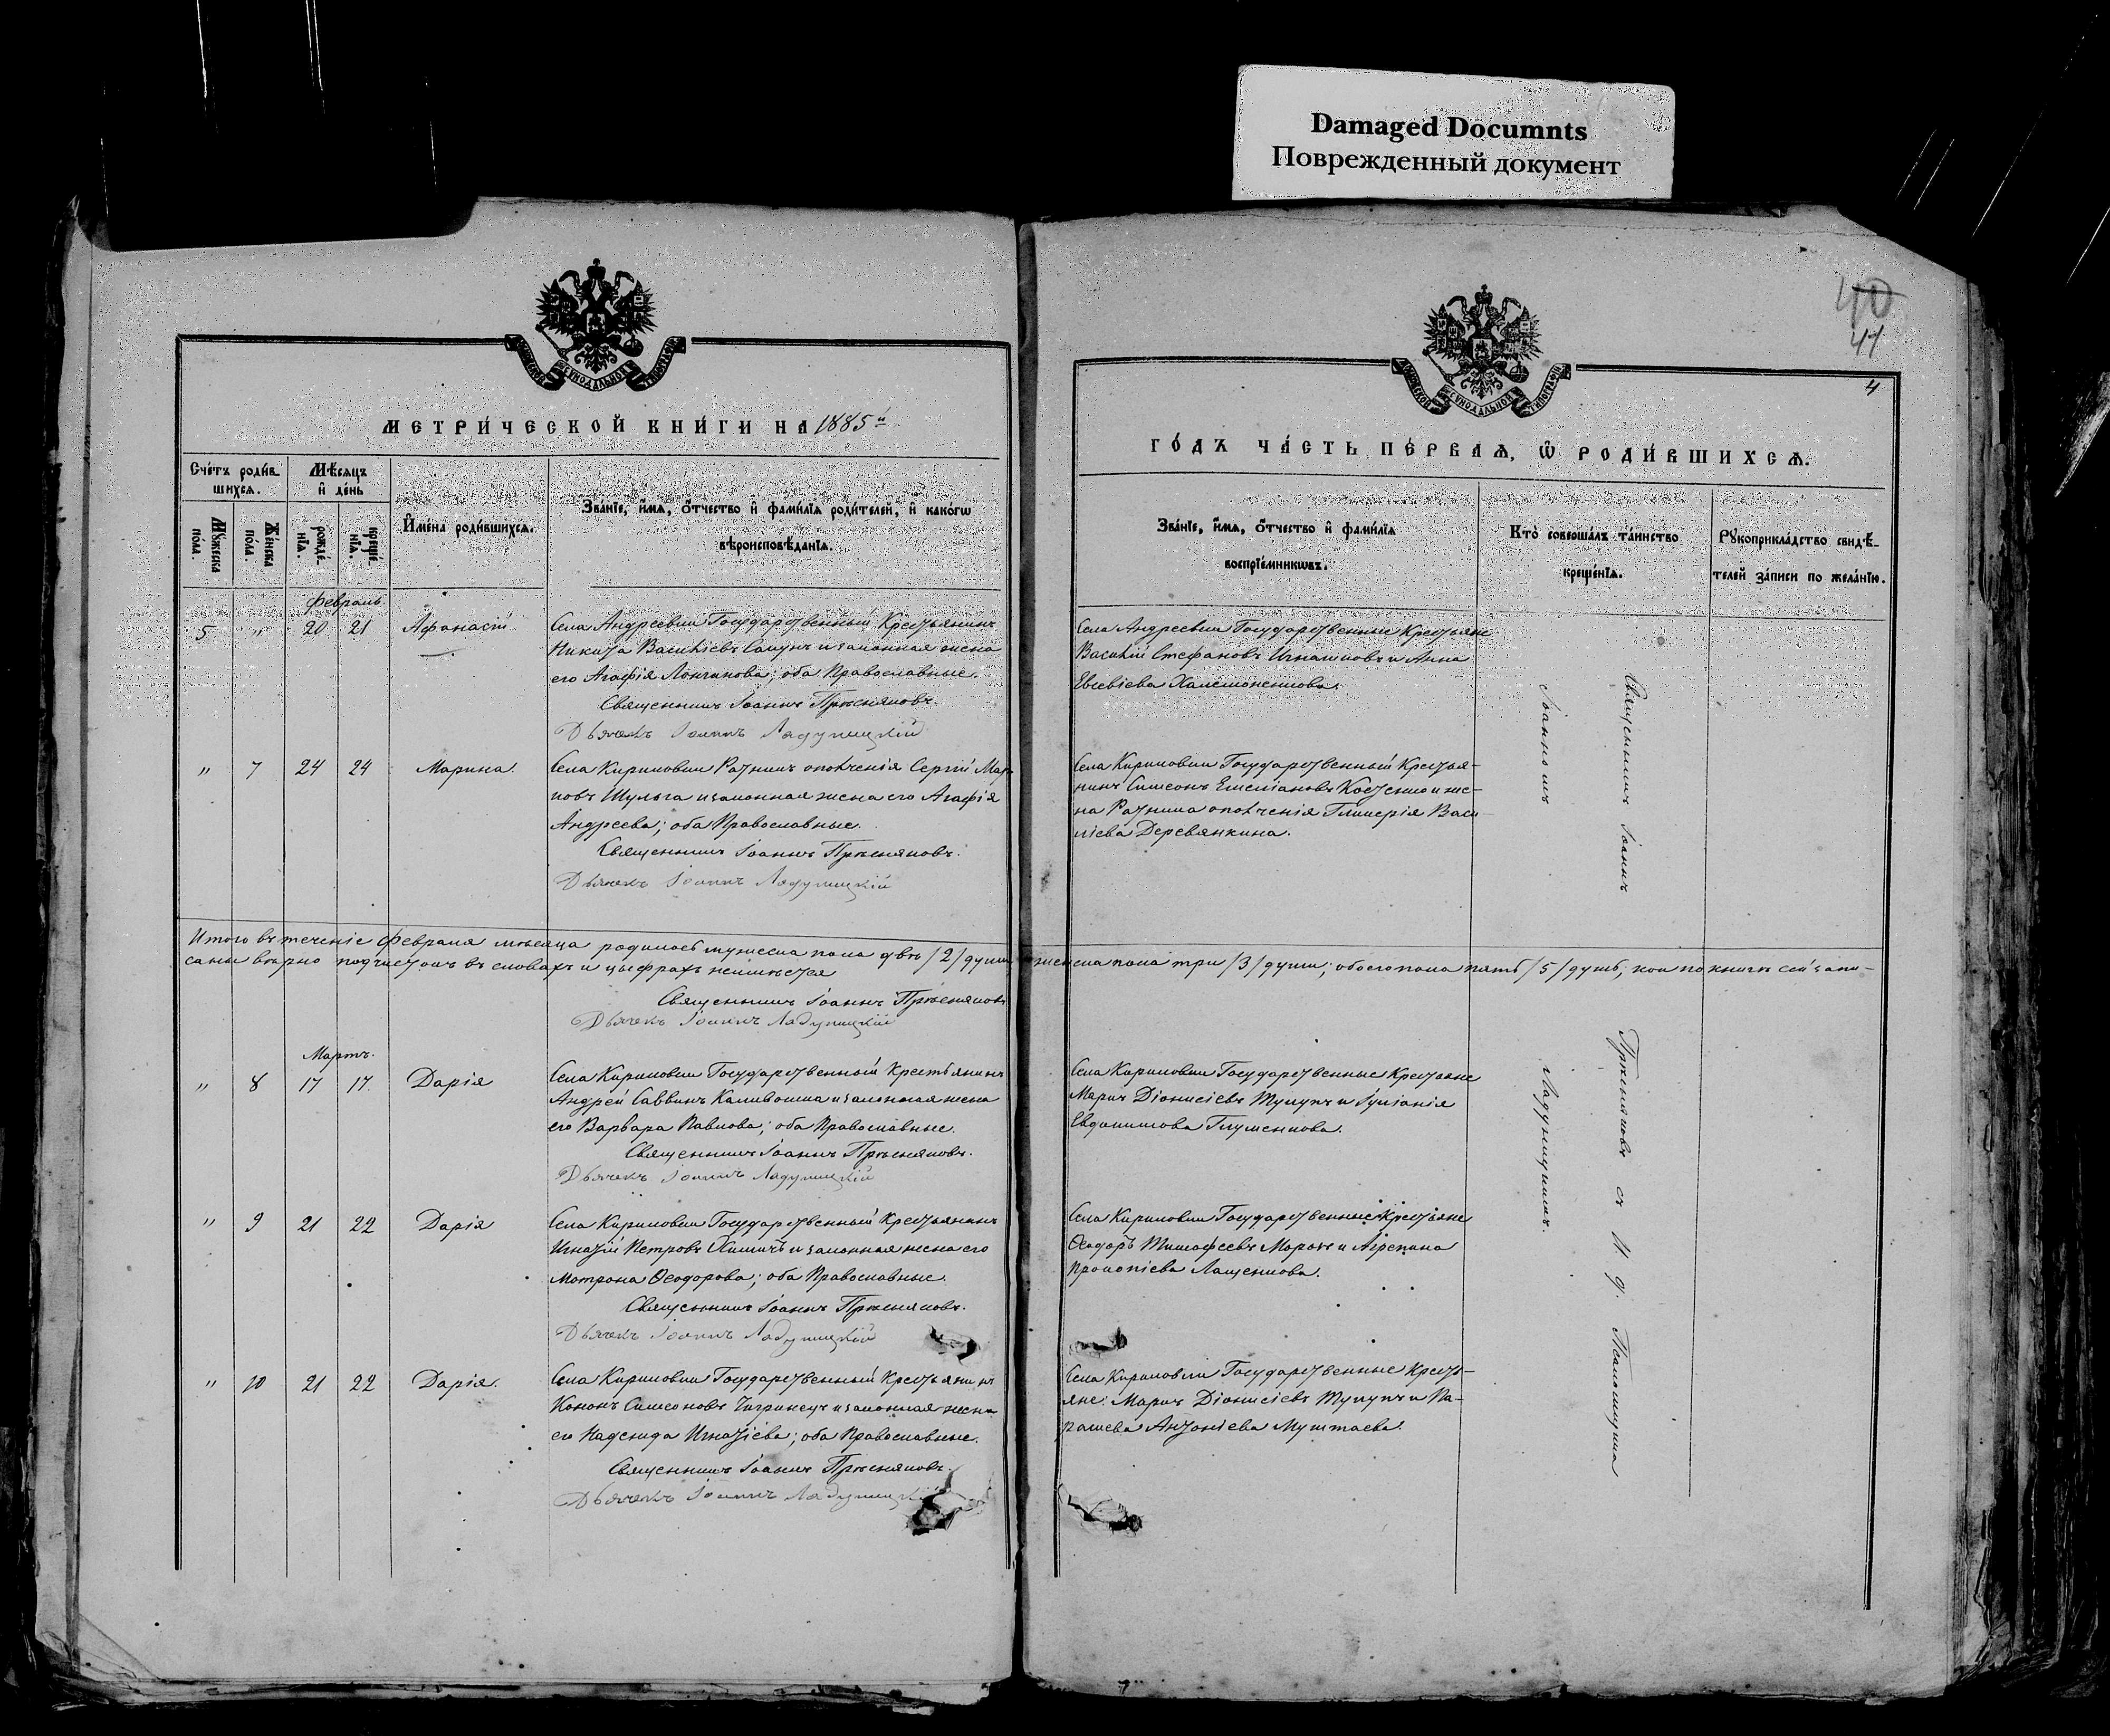 Damaged Documnts
Поврежденный документ
40
41
4
МЕТРИ́ЧЕСКОЙ КНИ́ГИ НА 1885й
ГО́ДЪ ЧА́СТЬ ПЕ́РВАѦ, Ѽ РОДИ́ВШИХСѦ.
Сче́тъ роди́в-
шихсѧ.
Мѣ́сѧцъ
и҆ де́нь
Мꙋ́жеска
по́ла.
Же́нска
по́ла.
рожде́-
нїѧ.
креще́-
нїѧ.
И҆мена́ роди́вшихсѧ.
Зва́нїе, и҆́мѧ, ѻ҆́тчество и҆ фами́лїѧ роди́телей, и҆ како́гѡ
вѣроисповѣ́данїѧ.
Зва́нїе, и҆́мѧ, ѻ҆́тчество и҆ фами́лїѧ
воспрїе́мникѡвъ.
Кто̀ соверша́лъ та́инство
креще́нїѧ.
Рꙋкоприкла́дство свидѣ́-
телей за́писи по жела́нїю.
Февраль.
5 " 20 21 Афанасій
Села Андреевки Государственный Крестьянинъ
Никита Васильевъ и законная жена
его Агафія Логинова; оба Православные.
Священникъ Іоаннъ Прѣсняковъ.
Дьячекъ Іоаннъ Ладуницкій
Села Андреевки Государственные Крестьяне
Василій Стефановъ Игнашковъ и Анна
Евсевіева
" 7 24 24 Марина.
Села Кириковки Ратникъ ополченія Сергій Мар-
ковъ Шульга и законная жена его Агафія
Андреева; оба Православные.
Священникъ Іоаннъ Прѣсняковъ.
Дьячекъ Іоаннъ Ладуницкій
Села Кириковки Государственный Крестья-
нинъ Симеонъ Емеліановъ Костенко и же-
на Ратника ополченія Гликерія Васи-
ліева Деревянкина.
Итого въ теченіе Февраля мѣсяца родилось мужеска пола двѣ /2/ души женска пола три /3/ души; обоего пола пять /5/ душъ, кои по книгѣ сей запи-
саны вѣрно подчистокъ въ словахъ и цыфрахъ неимѣется
Священникъ Іоаннъ Прѣсняковъ
Дьячекъ Іоаннъ Ладуницкій
Мартъ.
" 8 17 17. Дарія
Села Кириковки Государственный Крестьянинъ
Андрей Саввинъ и законная жена
его Варвара Павлова; оба Православные.
Священникъ Іоаннъ Прѣсняковъ.
Дьячекъ Іоаннъ Ладуницкій
Села Кириковки Государственные Крестьяне
Маркъ Діонисіевъ Тулупъ и Іуліанія
Евдокимова Глущенкова.
" 9 21 22 Дарія
Села Кириковки Государственный Крестьянинъ
Игнатій Петровъ и законная жена его
Мотрона Ѳеодорова; оба Православные.
Священникъ Іоаннъ Прѣсняковъ.
Дьячекъ Іоаннъ Ладуницкій
Села Кириковки Государственные Крестьяне
Ѳеодоръ Тимофеевъ Морозъ и Агрепина
Прокопіева Лащенкова.
" 10 21 22 Дарія.
Села Кириковки Государственный Крестьянинъ
Кононъ Симеоновъ Чигринецъ и законная жена
его Надежда Игнатіева; оба Православные.
Священникъ Іоаннъ Прѣсняковъ.
Дьячекъ Іоаннъ Ладуницкій
Села Кириковки Государственные Кресть-
яне: Маркъ Діонисіевъ Тулупъ и Па-
раскева Антоніева Муштаева.
Священникъ Іоаннъ Прѣсняковъ съ И. д. Псаломщика
Іоанномъ Ладуницкимъ.